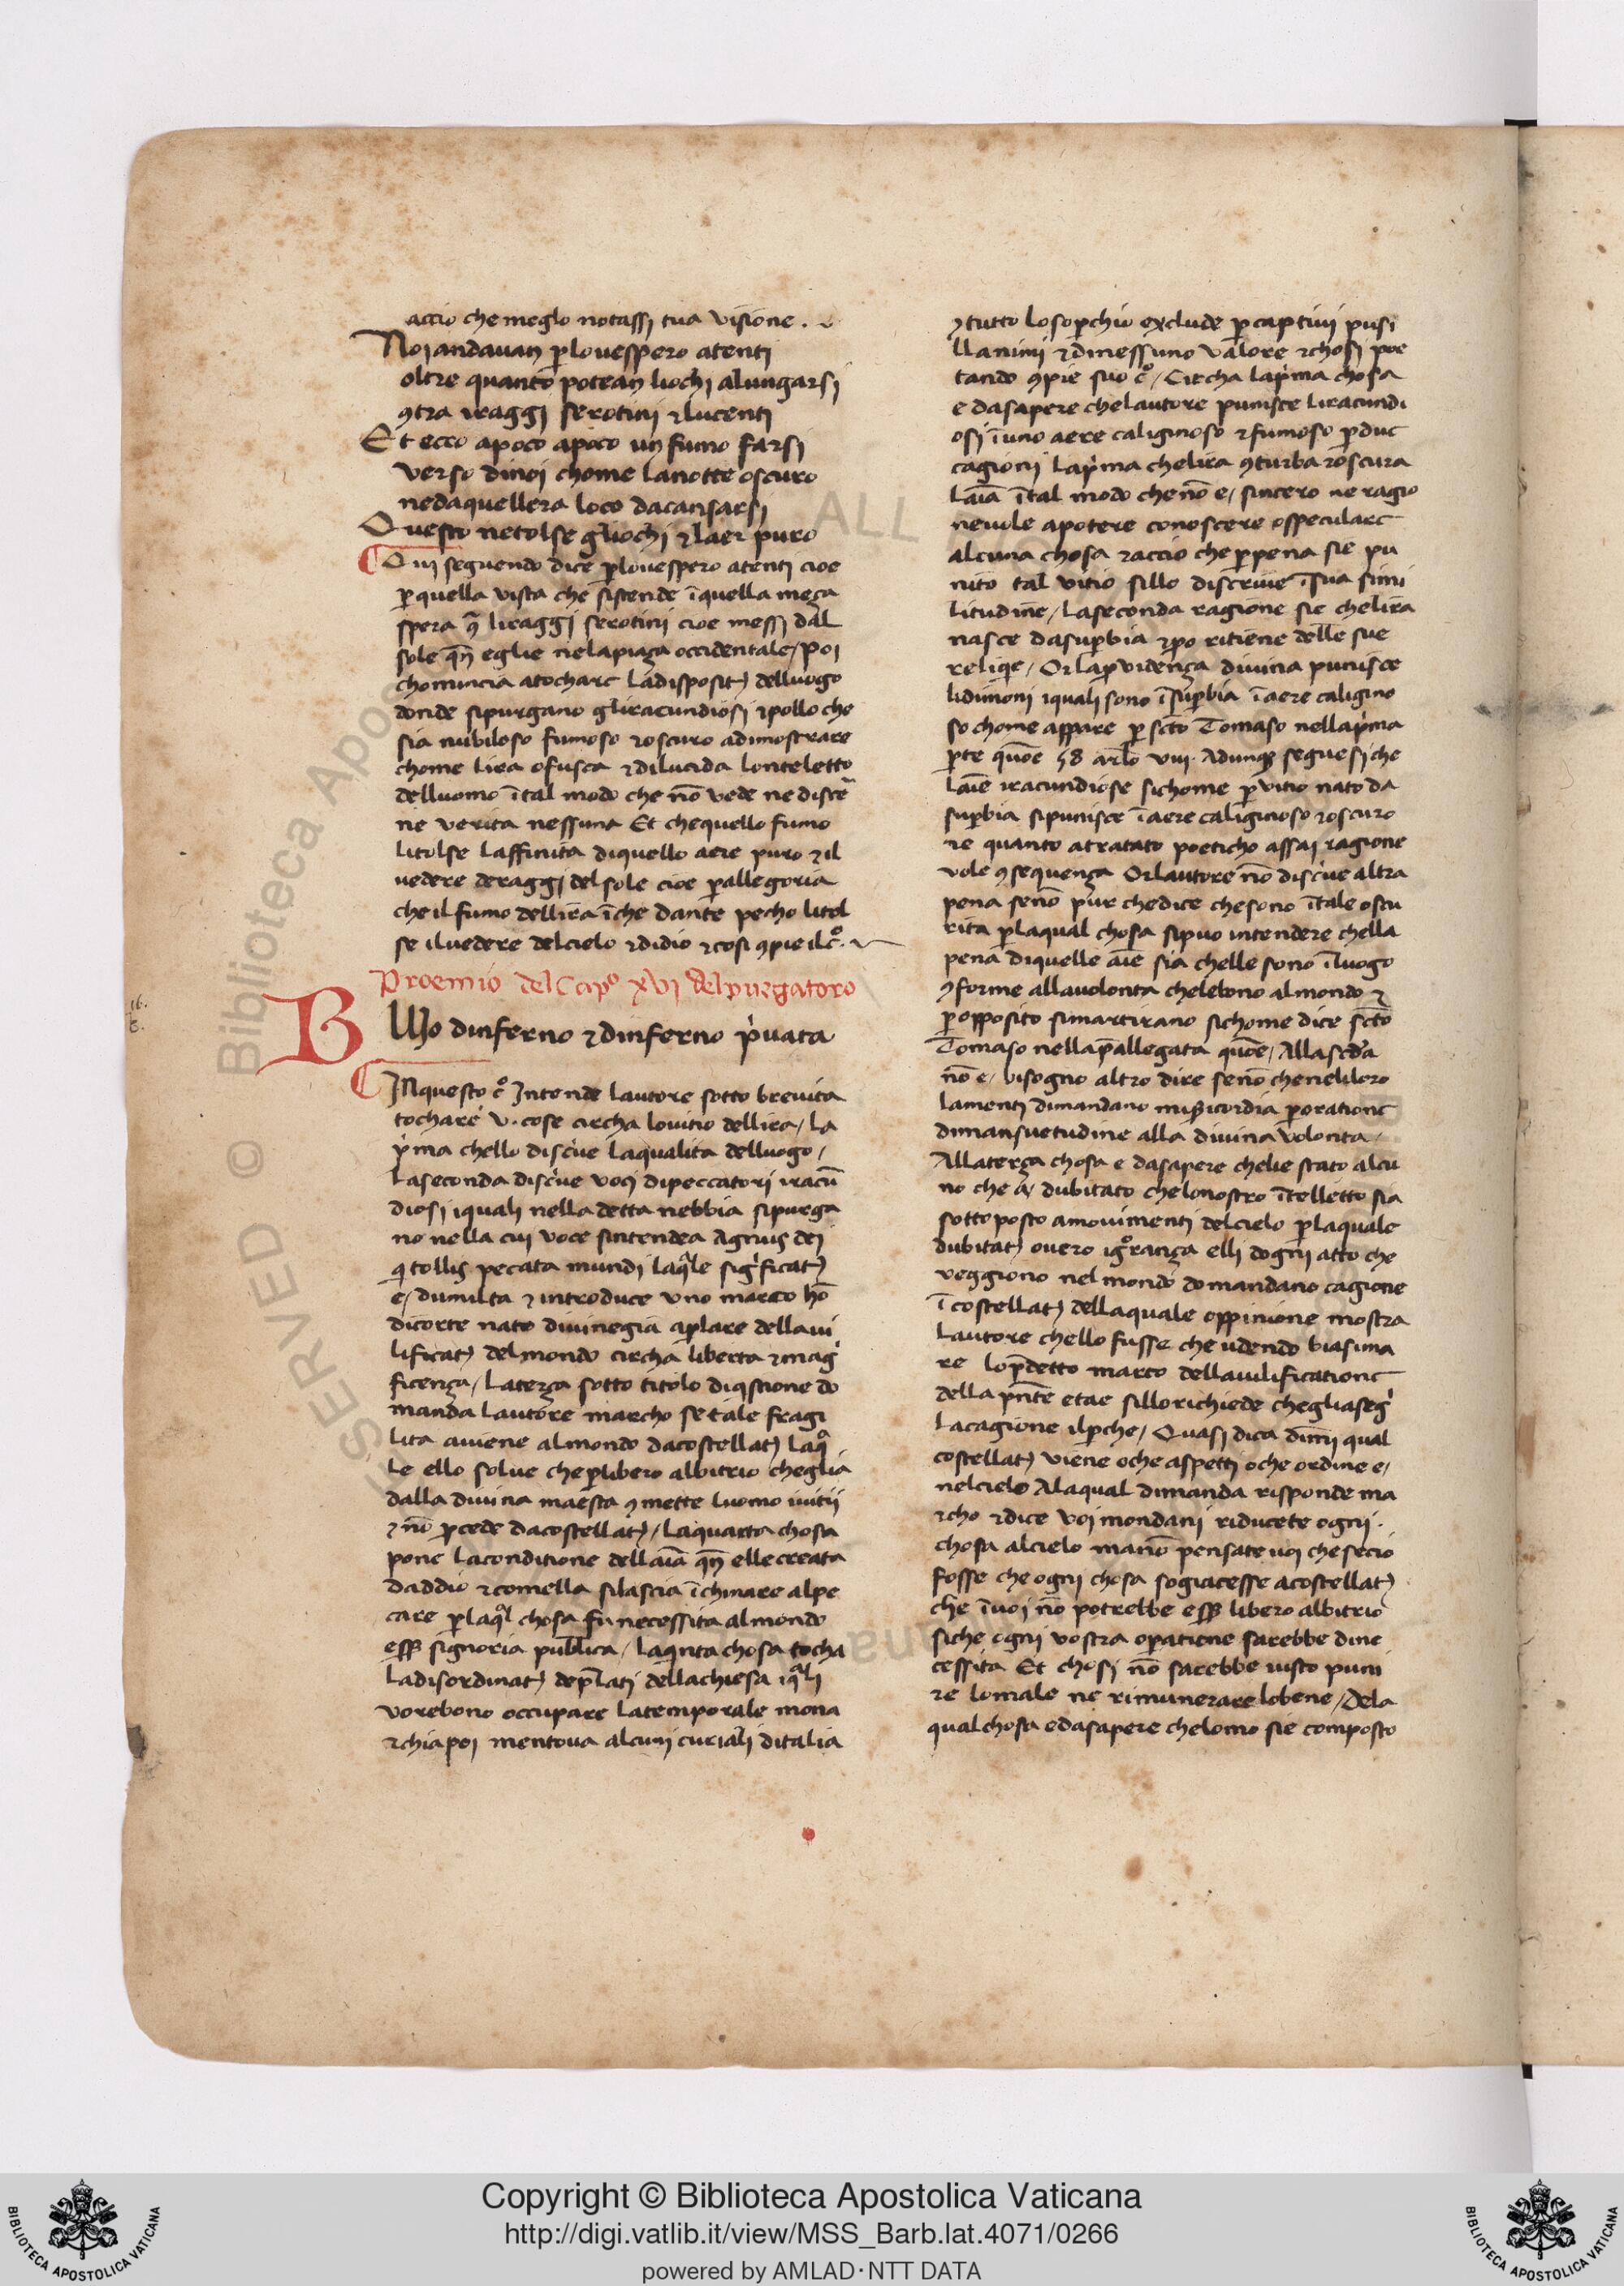 accio che meglo notassi tua visione .
Noi andavaӡ ꝑ lo vespero atenti
oltre quanto poteaӡ liochi alungarsi
ꝯtra iraggi serotini ⁊ lucenti
Et ecco apoco apoco un fumo farsi
verso dinoi chome lanotte oscuro
nedaquellera loco dacansarsi
Questo netolse gliochi ⁊ laer puro
Qui seguendo dice ꝑ lo vespero atenti cioe
ꝑ quella vista che sistende ī quella meça
spera ꝯª liraggi serotini cioe messi dal
sole qn̄ eglie nelapiaça occidentale / Poi
chomincia atochare ladispositꝫ delluogo
donde sipurgano gliracundiosi ⁊ pollo che
sia nubiloso fumoso ⁊ oscuro adimostrare
chome lira ofusca ⁊ dilucida lonteletto
delluomo ī tal modo che nō vede ne discē
ne verita nessuna Et chequello fumo
litolse laffinita diquello aere puro ⁊ il
vedere deraggi del sole cioe ꝑ allegoria
che il fumo dellira ī che dante pecho litol
se iluedere delcielo ⁊ didio ⁊ cosi ꝯpie ilc̊.
Proemio del Cap̊ xvi del purgatoro
16.
c.
BUio dinferno ⁊ dinferno pͥvata
INquesto c̊ Intende lautore sotto brevita
tochare v. cose circha lovitio dellira / La
pͥma chello discͥve laqualita delluogo /
Laseconda discͥve voci dipeccatori iracū
diosi iquali nella detta nebbia sipurga
no nella cui voce sintendea Agnus dei
qͥ tollis pecata mundi laqªle sigͥficatꝫ
e / dumilta ⁊ introduce uno marco hō
dicorte nato divinegia aplare della vi
lificatꝫ del mondo circha liberta ⁊ magͥ
ficença / Laterça sotto titolo diqstione do
manda lautore marcho se tale fragi
lita aviene almondo dacostellatꝫ laqª
le ello solve che ꝑ libero albitrio cheglia
dalla divina maesta ꝯmette luomo ivitii
⁊ nō ꝓcede dacostellatꝫ / Laquarta chosa
pone laconditione dell aīa qn̄ elle creata
daddio ⁊ comella silascia īchinare alpe
care ꝑ laqªl chosa fu necessita almondo
esser signoria publica / Laqͥnta chosa tocha
ladisordinatꝫ dep̄lati dellachiesa iqªli
vorebono occupare latemporale mona
rchia poi mentova alcuni curiali ditalia
ꝯ tutto losoꝑchio exclude ꝑ captivi pusi
llanimi ⁊ dinessuno valore ⁊ chosi poe
tando ꝯpie suo c̊ / Circha lapͥma chosa
e dasapere chelautore punisce liracundi
osi ī uno aere caliginoso ⁊ fumoso ꝑ due
cagioni lapͥma chelira ꝯturba ⁊ oscura
laīa ī tal modo che nō e / sincero ne ragio
nevole apotere conoscere o speculare
alcuna chosa ⁊ accio che ꝑ pena sie pu
nito tal vitio sillo discrive ī sua simi
litudine / Laseconda ragione sie chelira
nasce dasuꝑbia ⁊ ꝑo ritiene delle sue
reliqie / Or laꝓvidença divina punisce
lidimoni iquali sono ī suꝑbia ī aere caligino
so chome appare ꝑ scto Tomaso nella pͥma
ꝑte quōe 58 arlo viii. Adunqꝫ seguesi che
laīe iracundiose sichome ꝑ vitio nato da
suꝑbia sipunisce ī aere caliginoso ⁊ oscuro
⁊ e quanto atratato poeticho assai ragione
vole ꝯsequença Or lautore nō discͥve altra
pena senō pur chedice chesono ī tale oscu
rita ꝑ laqual chosa sipuo intendere chella
pena diquelle aīe sia chelle sono ī luogo
ꝯforme allavolonta chelebono almondo ⁊
ꝑ opposito simartirano sichome dice scto
Tomaso nella p̄allegata quōe / Alla scda
nō e / bisogno altro dire senō cheneliloro
lamenti dimandano misicordia ꝑ oratione
dimansuetudine alla divina volonta /
Allaterça chosa e dasapere chelie stato alcu
no che a / dubitato chelonostro ītelletto sia
sottoposto amovimenti delcielo ꝑ laquale
dubitatꝫ overo ignorança elli dogni atto che
veggiono nel mondo domandano cagione
ī costellatꝫ dellaquale oppinione mostra
lautore chello fusse che udendo biasima
re lop̄detto marco dellavilificatione
della pn̄te etae sillo richiede chegli asegͥ
lacagione ilꝑche / Quasi dica dimmi qual
costellatꝫ viene oche aspetti oche ordine e /
nelcielo Alaqual dimanda risponde ma
rcho ⁊ dice voi mondani riducete ogni .
chosa alcielo manō pensate voi che secio
fosse che ogni chosa sogiacesse acostellatꝫ
che ī voi nō potrebbe esser libero albitrio
siche ogni vostra oꝑatione sarebbe dine
cessita Et chosi nō sarebbe iusto puni
re lomale ne rimunerare lobene / Dela
qual chosa edasapere chelomo sie composto
Copyright © Biblioteca Apostolica Vaticana
http://digi.vatlib.it/view/MSS_Barb.lat.4071/0266
powered by AMLAD·NTT DATA
BIBLIOTECA APOSTOLICA VATICANA
BIBLIOTECA APOSTOLICA VATICANA